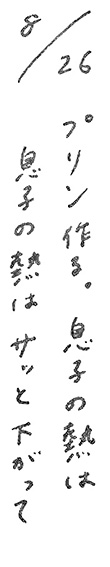 8/26
プリン作る。息子の熱は
息子の熱はサッと下がって